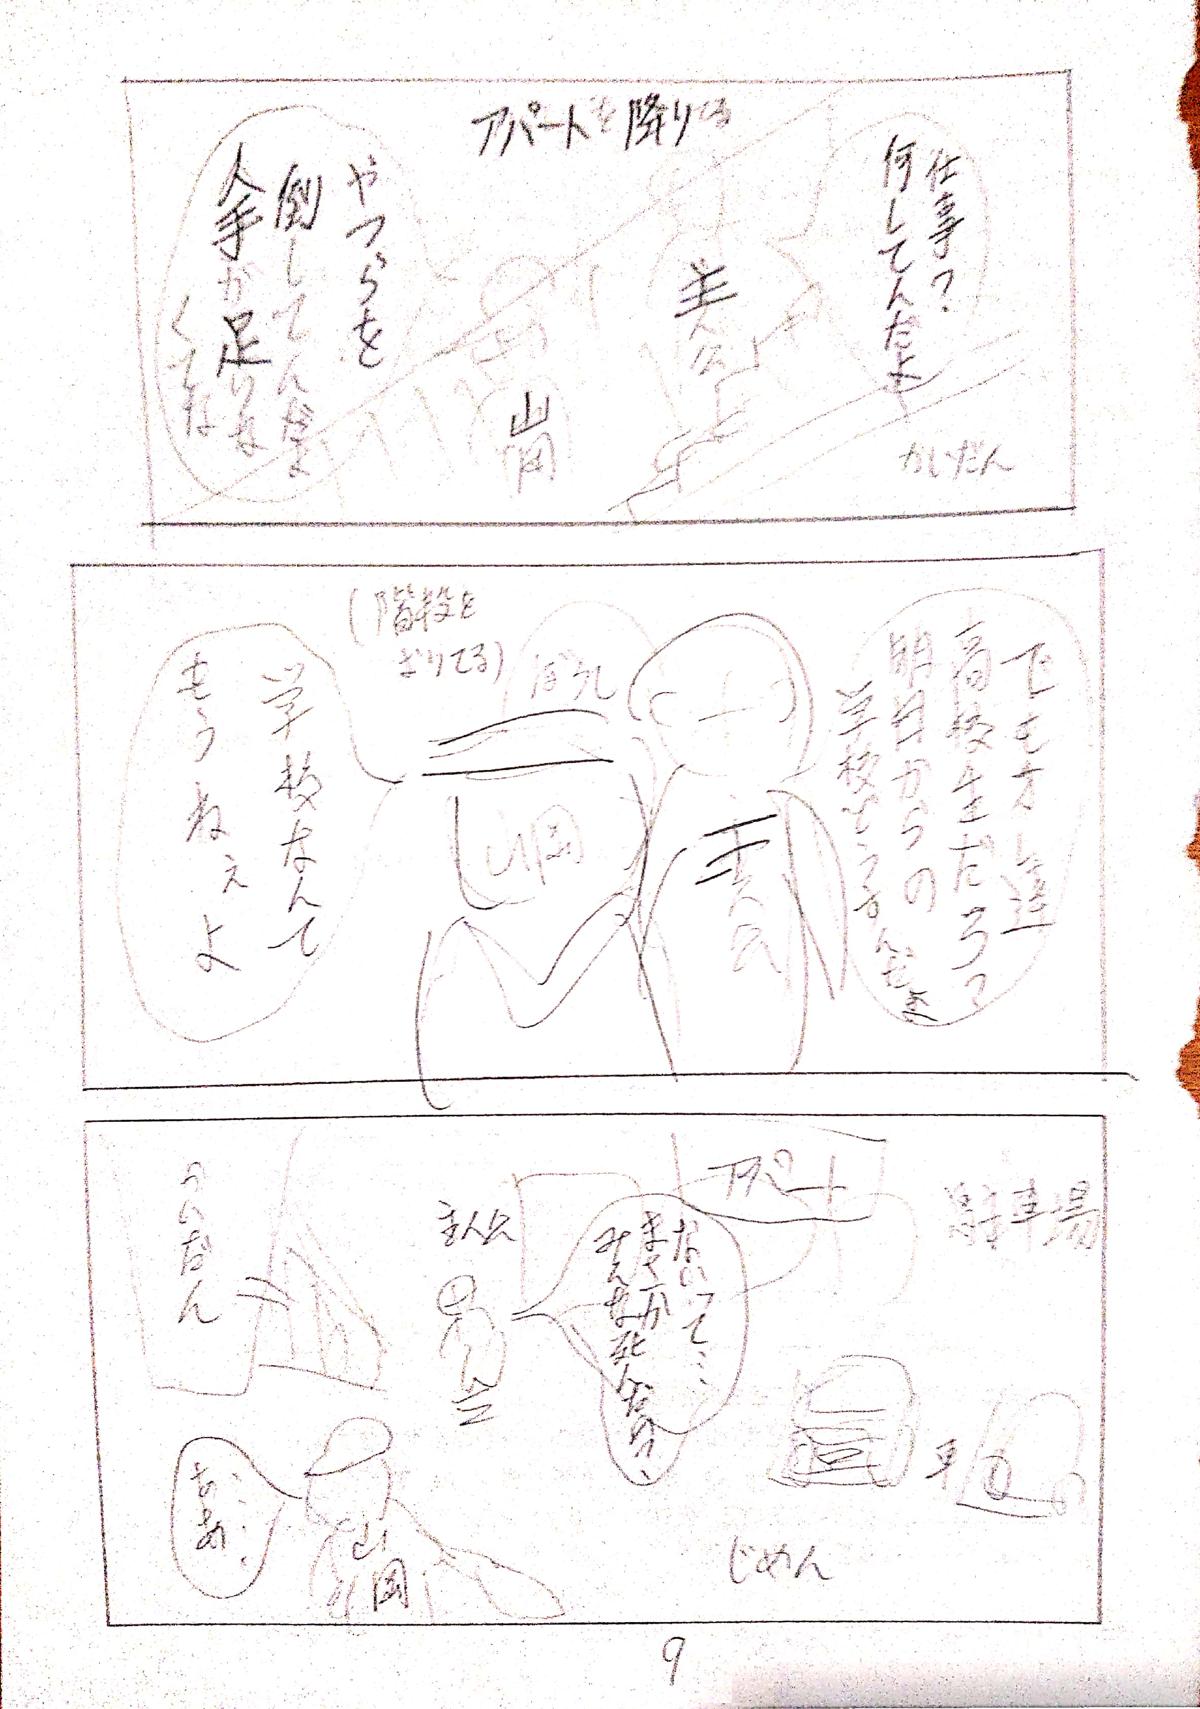 仕事?
何してんだよ
アパートを降りてる
主人公
かいだん
山岡
やつらを
倒してんだよ
人手が足りな
くてな
でもオレ達
高校生だろ?
明日からの
学校どうすんだよ
(階段を
おりてる)
ぼうし
主人公
山岡
学校なんて
もうねぇよ
駐車場
アパート
ないって…
まさか
みんな死んだの?
主人公
かいだん
車
ああ…
山岡
じめん
9